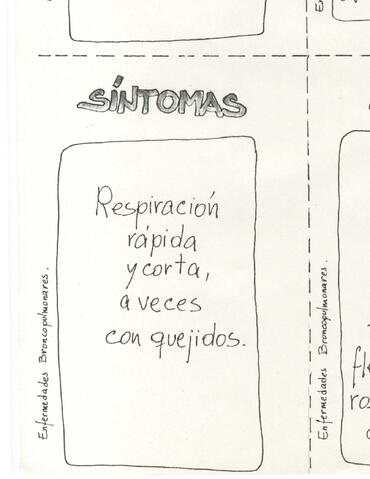 SÍNTOMAS
Respiración
rápida
y corta,
a veces
con quejidos.
Enfermedades Broncopulmonares.
Enfermedades Broncopulmonares.